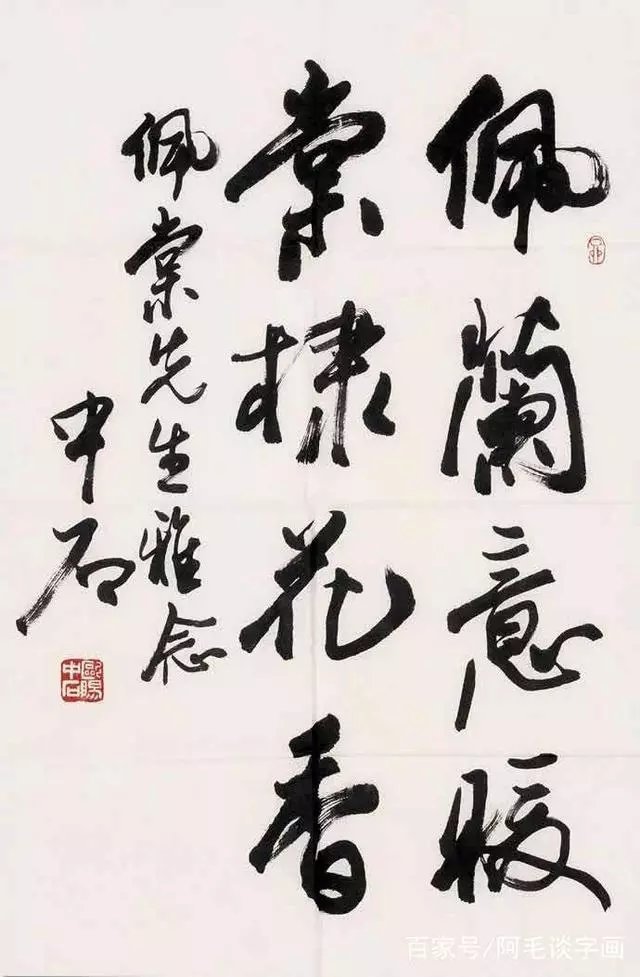 佩蘭意暖
棠棣花香
佩棠先生雅念
中石
歐陽中石
百家号/阿毛谈字画